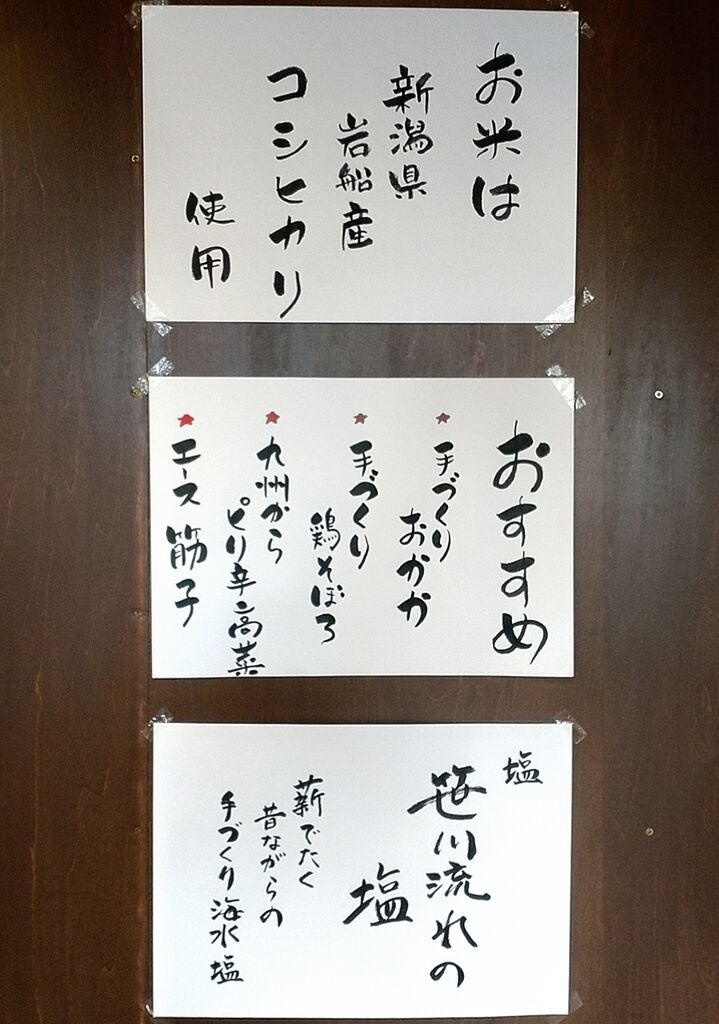 お米は
新潟県
岩船産
コシヒカリ
使用
おすすめ
★手づくり
おかか
★手づくり
鶏そぼろ
★九州から
ピリ辛高菜
★エース筋子
塩
笹川流れの
塩
薪でたく
昔ながらの
手づくり海水塩